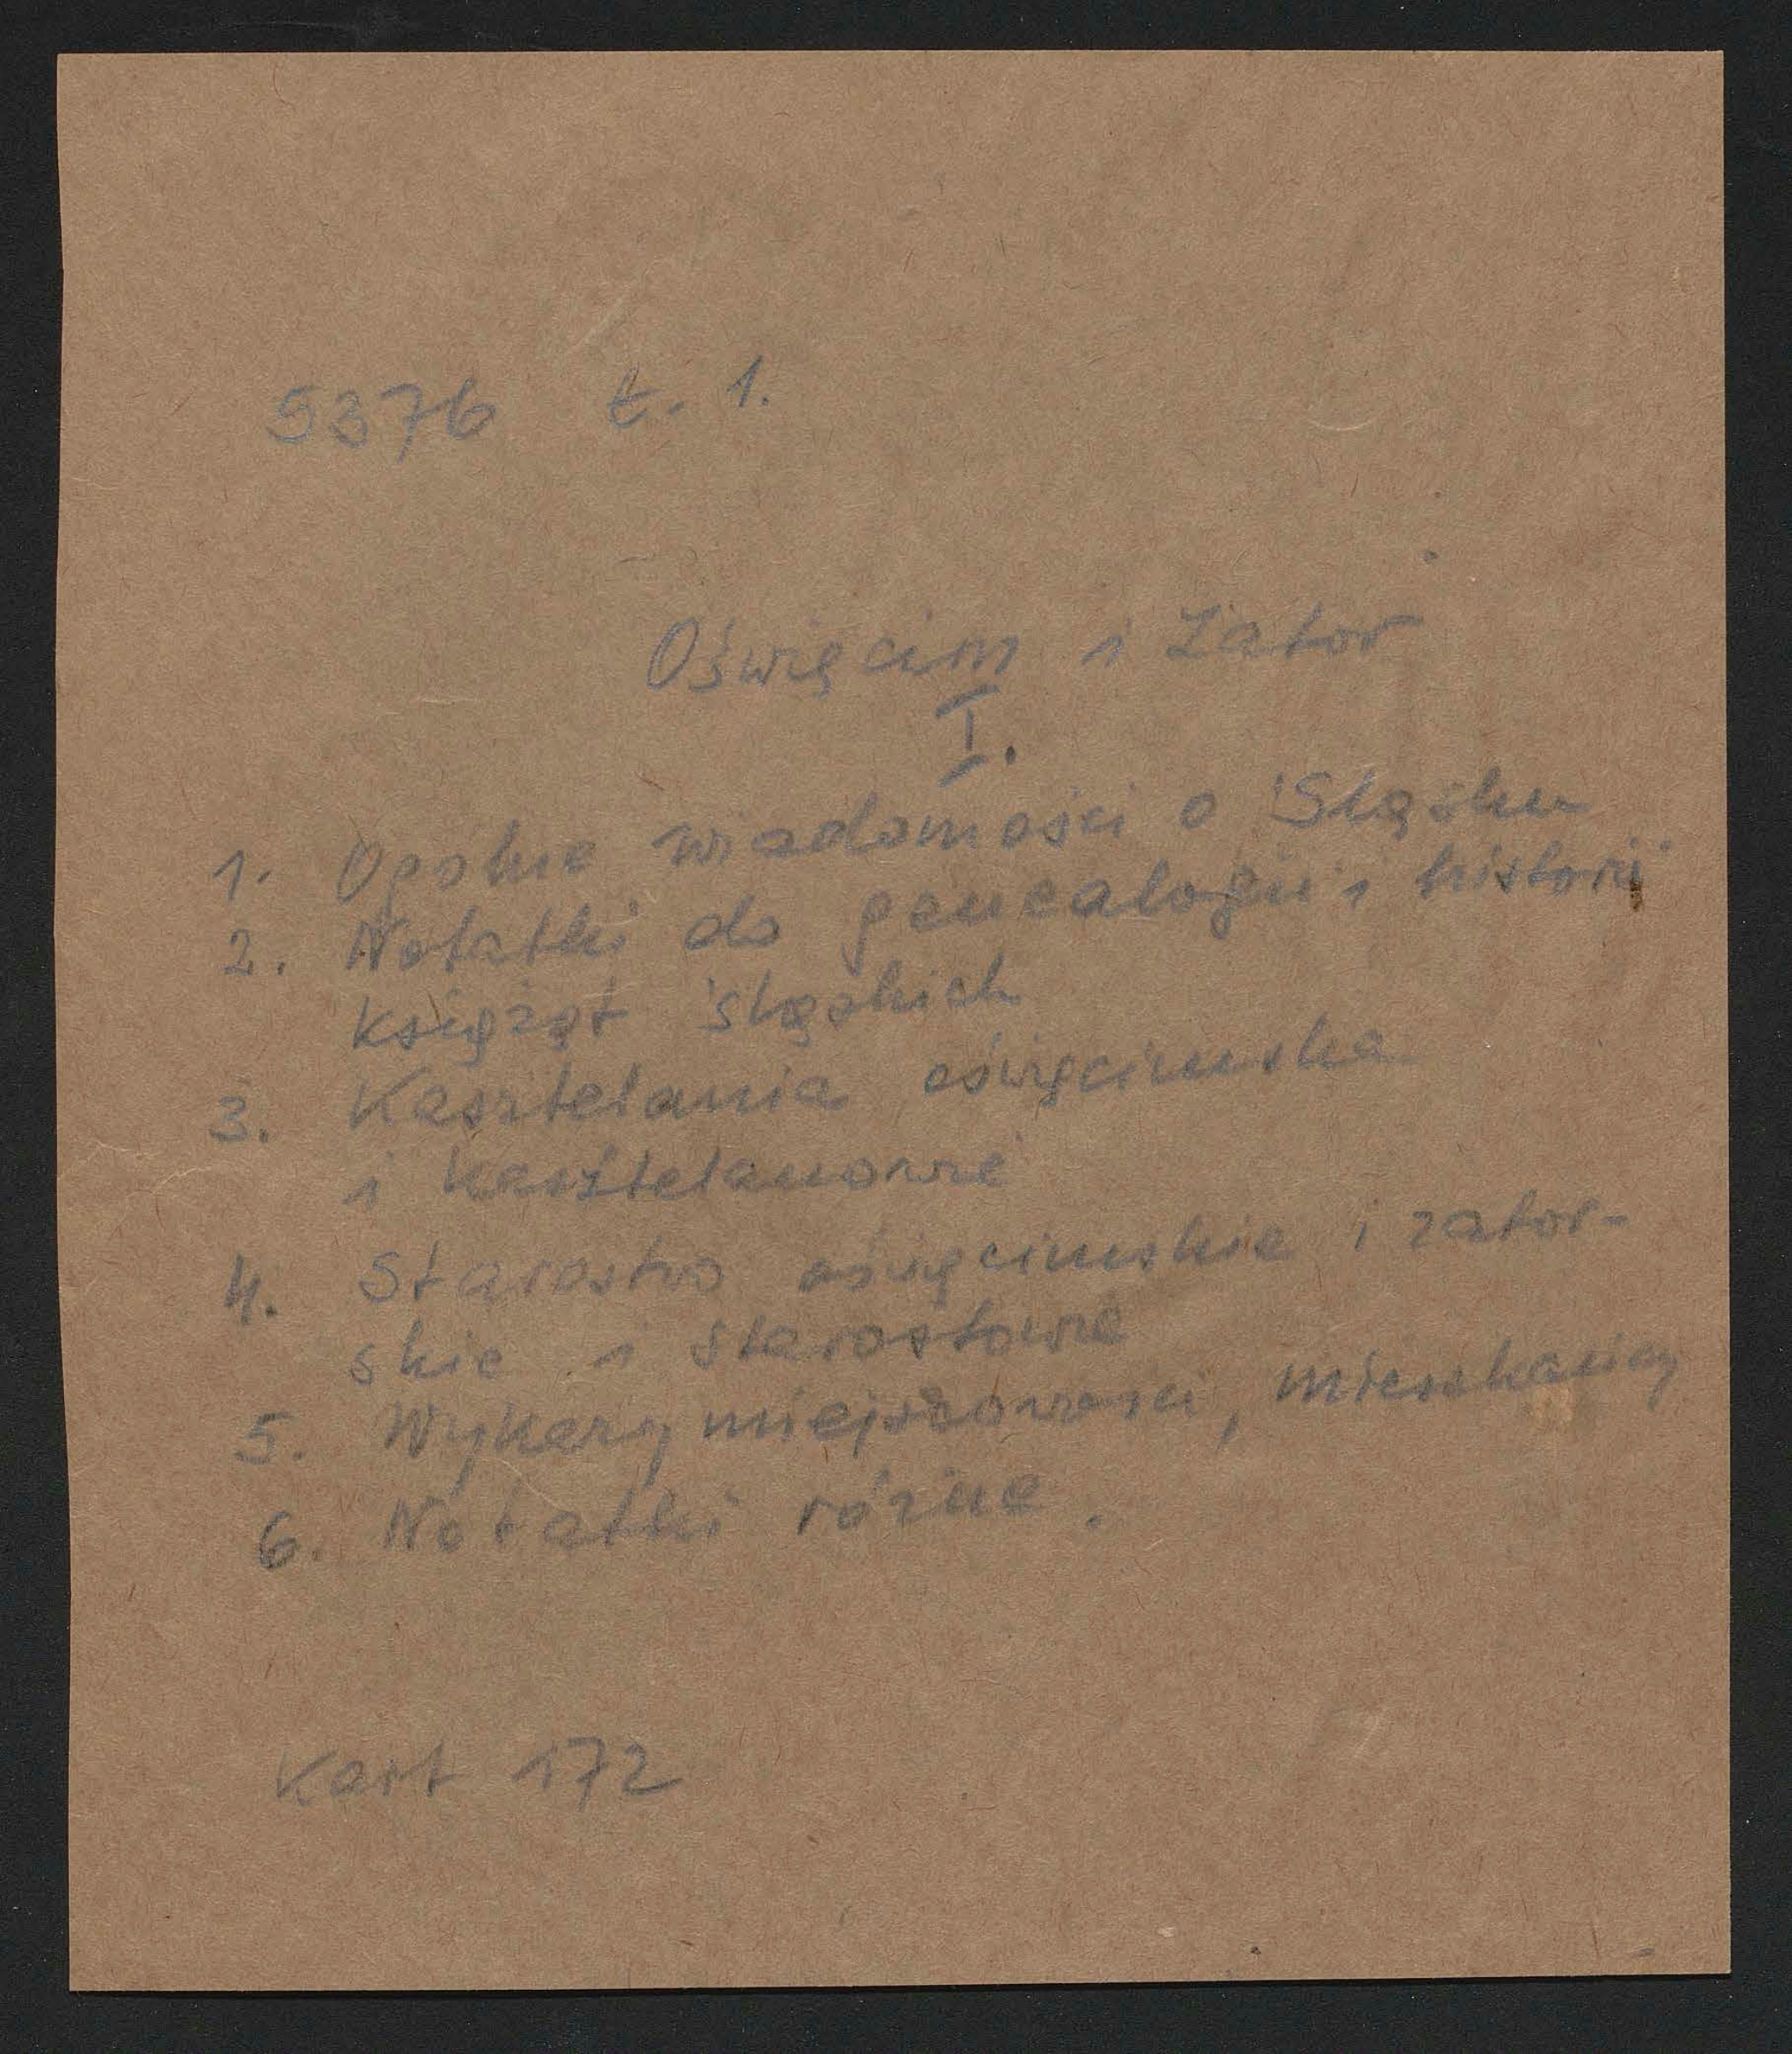 5376 t. 1.
Oświęcim i Zator
I.
1. Ogólne wiadomości o Śląsku
2. Notatki do genealogii i historii
książąt śląskich
3. Kasztelania oświęcimska
i kasztelanowie
4. Starostwo oświęcimskie i zator-
skie i starostowie
5. Wykazy miejscowości, mieszkańcy
6. Notatki różne.
Kart 172